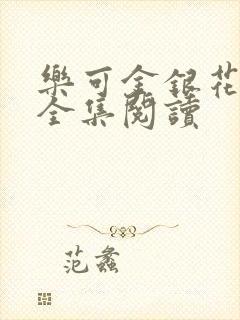 樂可金銀花
全集閱讀
范蠡